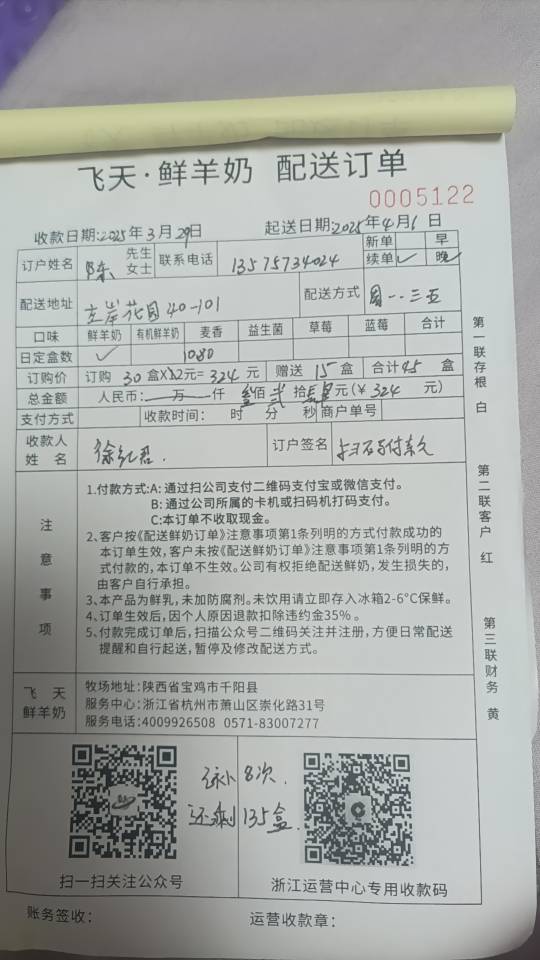 飞天·鲜羊奶 配送订单
0005122
收款日期:2025年3月29日 起送日期:2025年4月1日
订户姓名 陈 先生 女士 联系电话 13575734024 新单 早
续单✓ 晚✓
配送地址 左岸花园40-101 配送方式 周一.三五
口味 鲜羊奶 有机鲜羊奶 麦香 益生菌 草莓 蓝莓 合计
日定盒数 ✓ 1080
订购价 订购 30 盒X12元= 324 元 赠送 15 盒 合计45 盒
总金额 人民币: 万 仟 叁佰 贰 拾 肆 元(¥ 324 元)
支付方式 收款时间: 时 分 秒 商户单号
收款人 姓名 徐红君 订户签名
注意事项
1.付款方式:A: 通过扫公司支付二维码支付宝或微信支付。
B: 通过公司所属的卡机或扫码机打码支付。
C:本订单不收取现金。
2、客户按《配送鲜奶订单》注意事项第1条列明的方式付款成功的
本订单生效,客户未按《配送鲜奶订单》注意事项第1条列明的方
式付款的,本订单不生效。公司有权拒绝配送鲜奶,发生损失的,
由客户自行承担。
3、本产品为鲜乳,未加防腐剂。未饮用请立即存入冰箱2-6°C保鲜。
4、订单生效后,因个人原因退款扣除违约金35%。
5、付款完成订单后,扫描公众号二维码关注并注册,方便日常配送
提醒和自行起送,暂停及修改配送方式。
飞天
鲜羊奶
牧场地址:陕西省宝鸡市千阳县
服务中心:浙江省杭州市萧山区崇化路31号
服务电话:4009926508 0571-83007277
8次.
还剩135盒
扫一扫关注公众号
浙江运营中心专用收款码
账务签收: 运营收款章:
第一联存根 白
第二联客户 红
第三联财务 黄